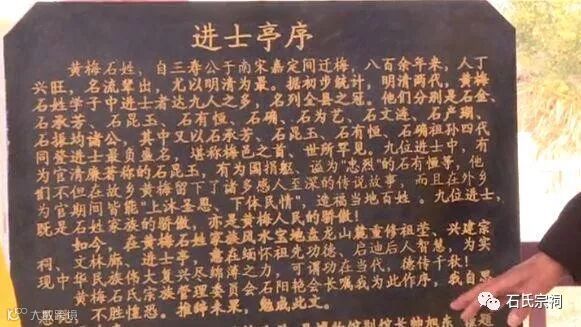 进士亭序
黄梅石姓，自三寿公于南宋嘉定间迁梅，八百余年来，人丁
兴旺，名流辈出，尤以明清为最。据初步统计，明清两代，黄梅
石姓学子中进士者达九人之多，名列全县之冠。他们分别是石金、
石承芳、石昆玉、石有恒、石确、石为艺、石文涟、石产瑚、
石振均诸公，其中又以石承芳、石昆玉、石有恒、石确祖孙四代
同登进士最负盛名，堪称梅邑之首、世所罕见，九位进士中，有
为官清廉著称的石昆玉，有为国捐躯、谥为"忠烈"的石有恒等，他
们不但在故乡黄梅留下了诸多感人至深的传说故事，而且在外乡
为官期间皆能"上沐圣恩、下体民情"，造福当地百姓。九位进士，
既是石姓家族的骄傲，亦是黄梅人民的骄傲！
如今，在黄梅石姓家族风水宝地 龙山麓重修祖堂、兴建宗
祠、文林廊、进士亭，意在缅怀祖先功德、启迪后人智慧，为实
现中华民族伟大复兴尽绵薄之力，可谓功在当代，德传千秋！
黄梅石氏宗族管理委员会石阳艳会长嘱我为此作序，我自
不胜惶恐。推辞未果，勉成此文。
大数跨境
石氏宗祠